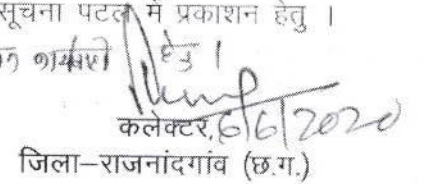 सूचना पटल में प्रकाशन हेतु ।
हेतु ।
कलेक्टर, 6/6/2020
जिला–राजनांदगांव (छ.ग.)